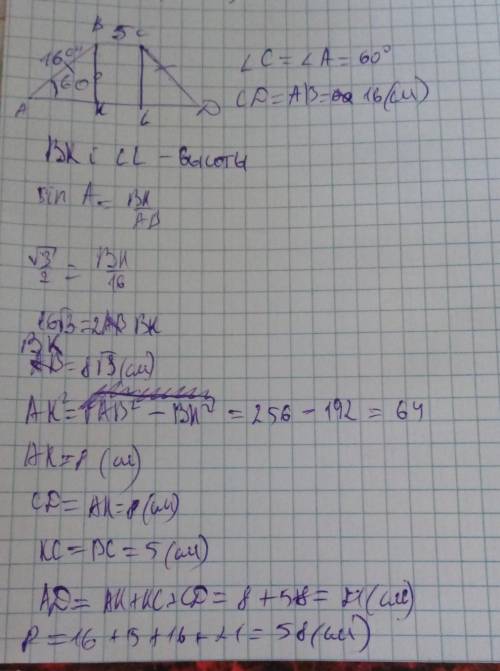 B 5 C
16см
60°
A K L D
∠C = ∠A = 60°
CD = AB = 16 (см)
BK i CL - высоты
sin A = BK/AB
√3/2 = BK/16
16√3 = 2 BK
BK = 8√3 (см)
AK² = AB² - BK² = 256 - 192 = 64
AK = 8 (см)
CD = AK = 8 (см)
KC = BC = 5 (см)
AD = AK + KC + CD = 8 + 5 + 8 = 21 (см)
P = 16 + 5 + 16 + 21 = 58 (см)